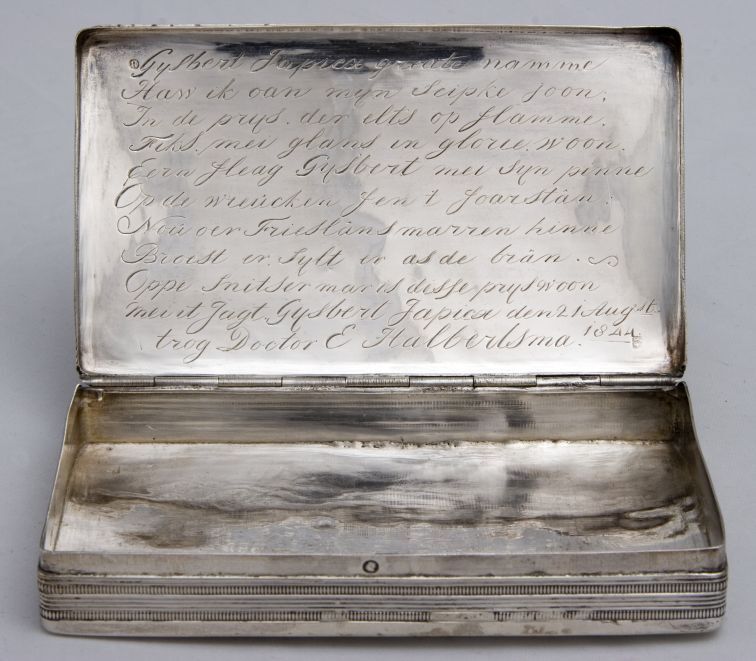 Gysbert Japicx greate namme
Haw ik oan myn Scipke joon,
In de prys der elts op flamme,
Fiks mei glans in glorie woon.
Eern fleag Gysbert mei syn pinne
Op de wieucken fen t Joarstân:
Nou oer Frieslâns marren hinne
Broest er, sylt er as de brân.
Oppe Snitser mar is desse prys woon
mei it Jagt Gysbert Japicx den 21 Augst.
trog Doctor E Halbertsma. 1844